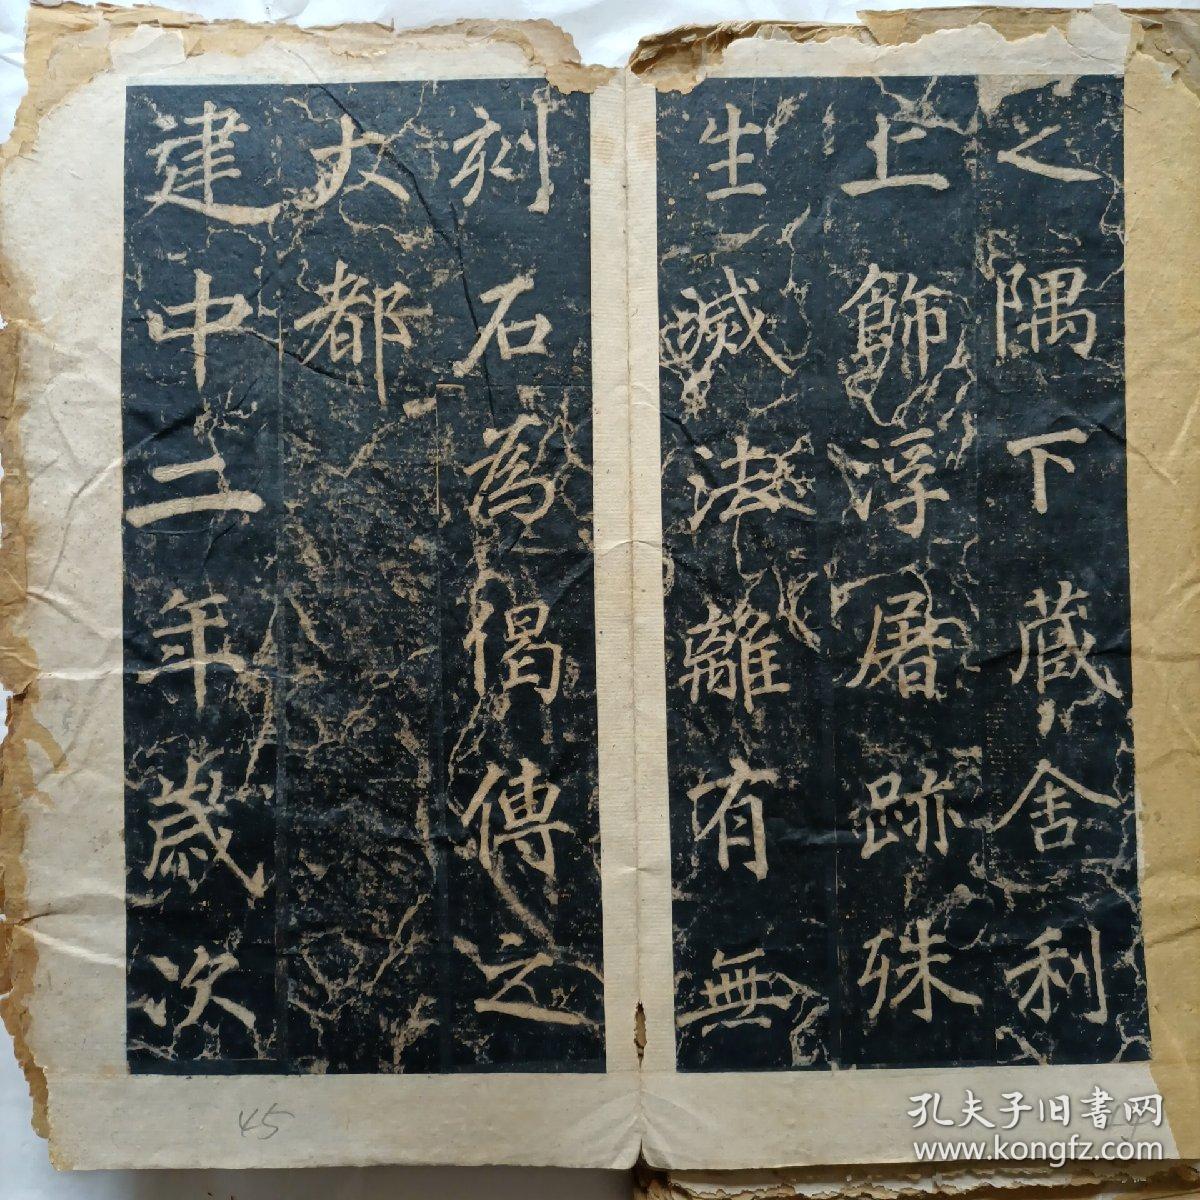 之隅下蔵舍利
上飾浮屠跡殊
生滅法離有無
刻石為偈傳之
大都
建中二年歲次
45
孔夫子旧書网
www.kongfz.com